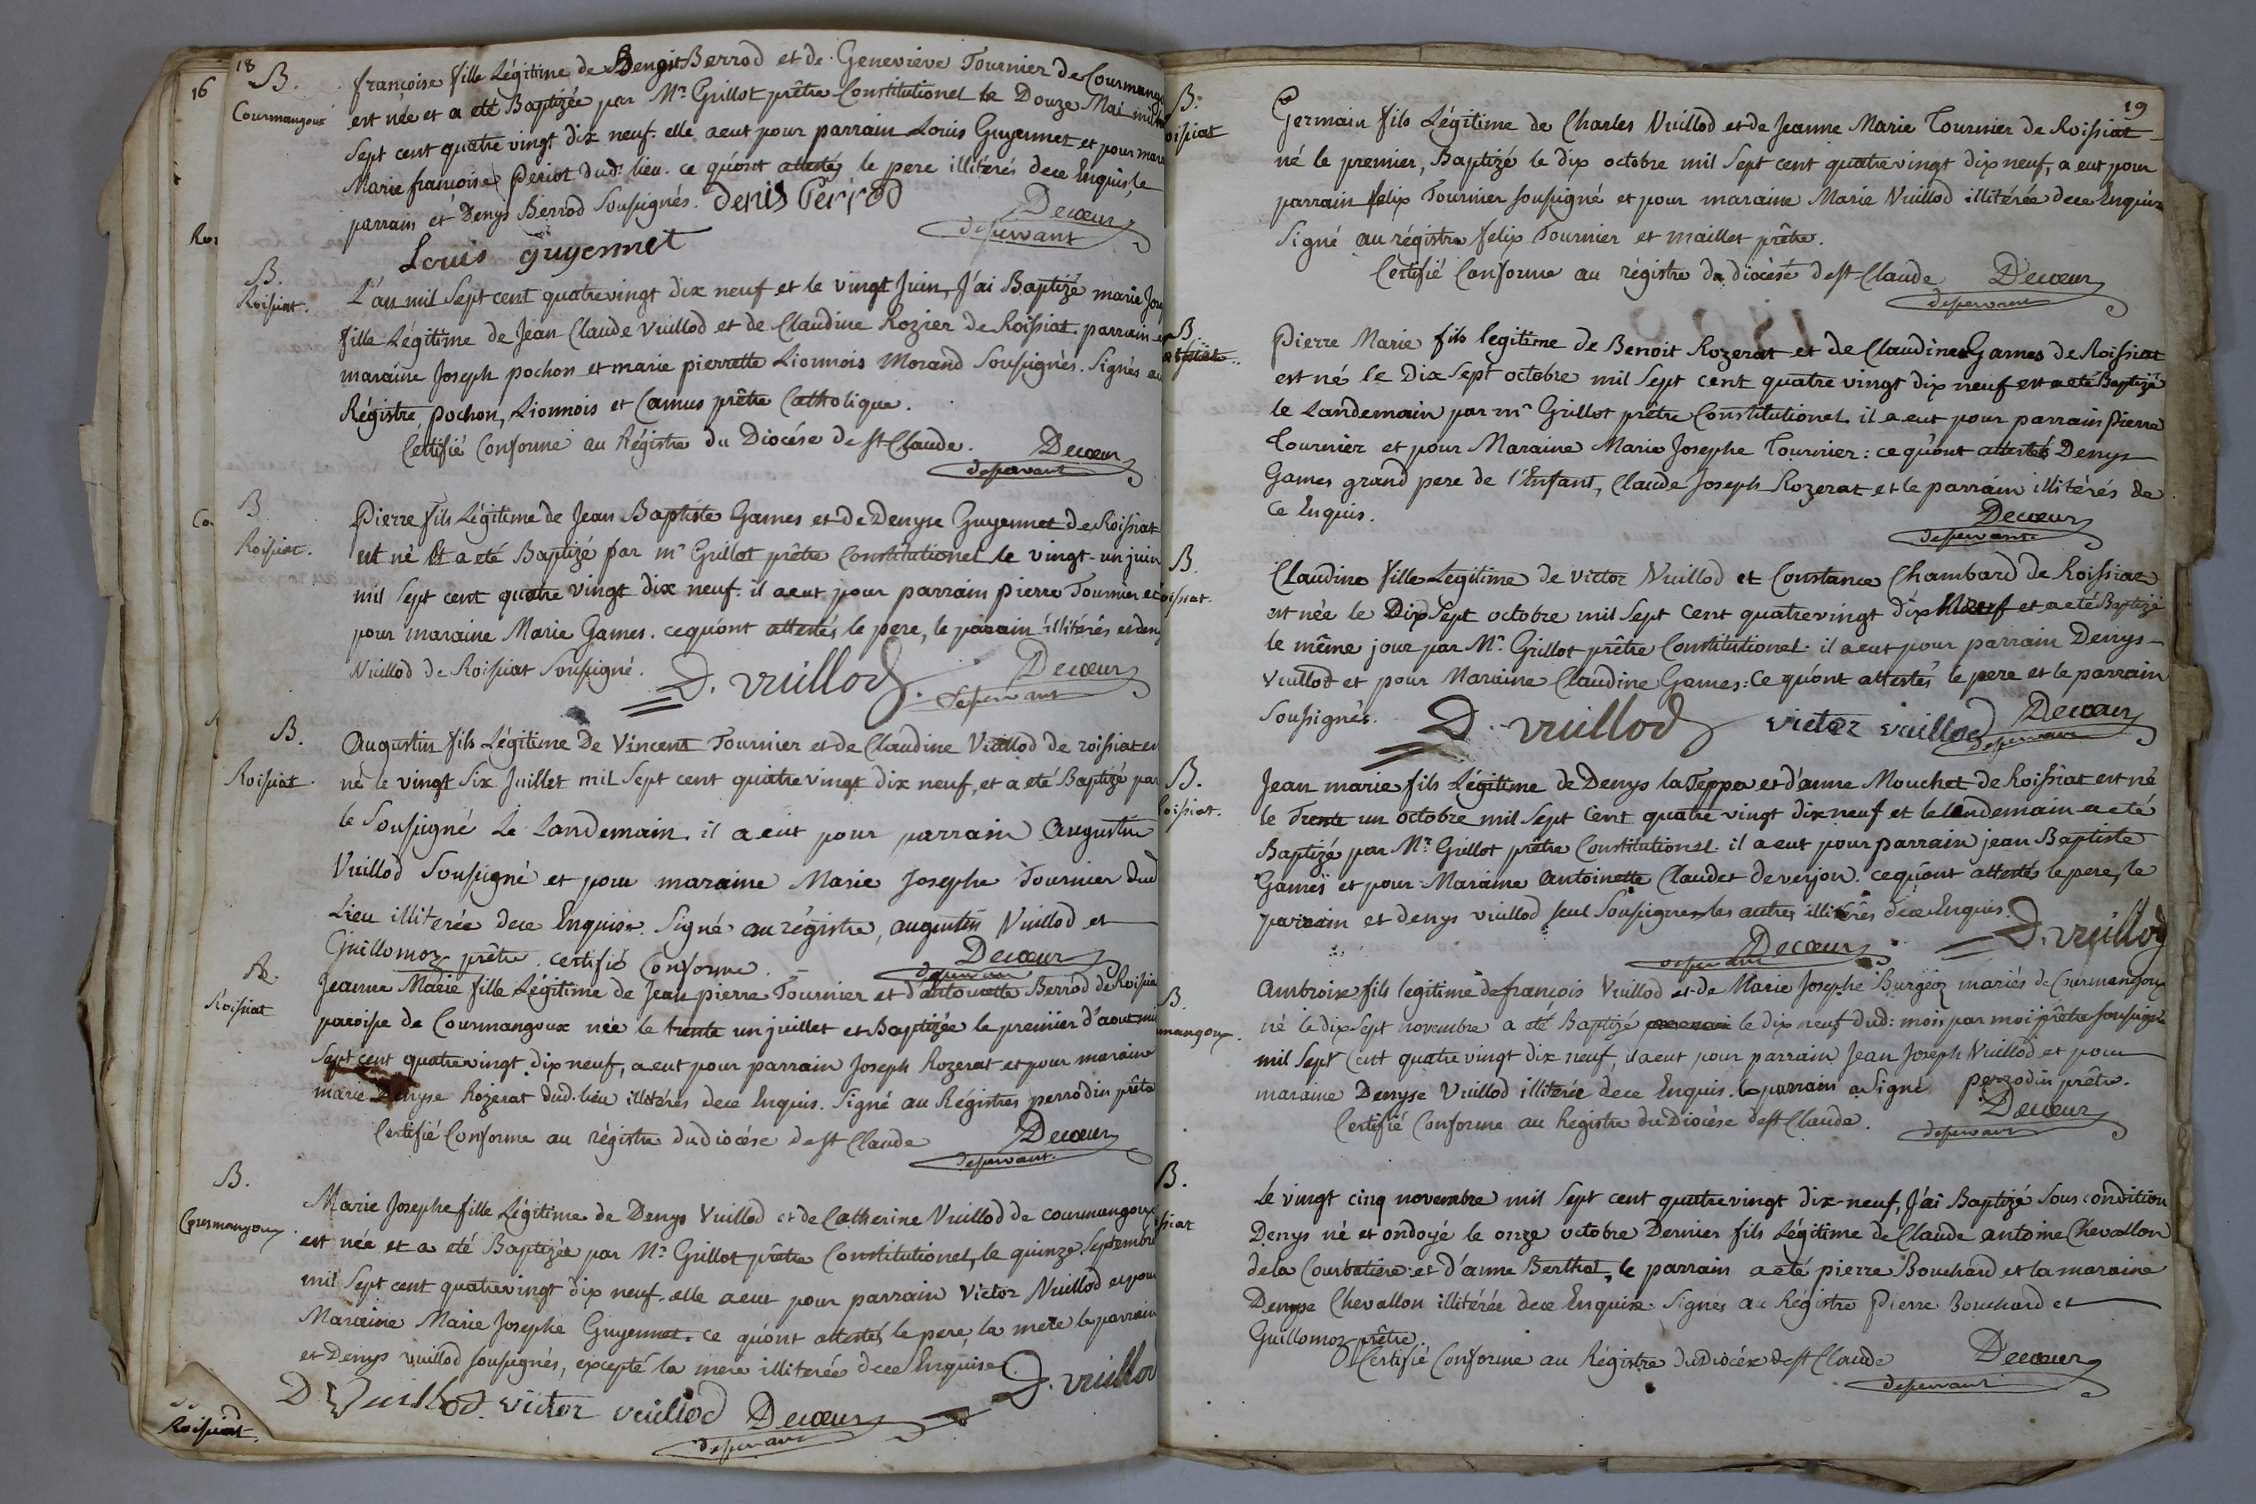 18
B.
Courmangoux
françoise fille Légitime de Benoit Berrod et de Geneviève Tournier de Courmango
est née et a eté Baptizée par Mr Grillot prêtre Constitutionel le Douze Mai mil
Sept cent quatre vingt dix neuf. elle a eut pour parrain Louis Guyennet et pour mara
Marie françoise Periot dud. lieu. ce qu'ont attestés le pere illitérés de ce Enquis, le
parrain et Denys Berrod Sousignés. denis Perrod
Decœur
desservant
Louis guyennet
B.
Roissiat.
L'an mil Sept cent quatre vingt dix neuf et le vingt Juin, J'ai Baptizé marie Jos
fille Légitime de Jean Claude Vuillod et de Claudine Rozier de Roissiat. parrain et
maraine Joseph pochon et marie pierrette Lionnois Morand Sousignés. Signés au
Régistre, pochon, Lionnois et Camus prêtre Catholique.
Certifié Conforme au Régistre du Diocése de St Claude.
Decœur
desservant
B
Roissiat.
Pierre fils Légitime de Jean Baptiste Games et de Denyse Guyennet de Roissiat
est né et a eté Baptizé par mr Grillot prêtre Constitutionel le vingt-un juin
mil Sept cent quatre vingt dix neuf. il a eut pour parrain pierre Tournier et
pour maraine Marie Games. ce qu'ont attestés le pere, le parain illitérés et deny
Vuillod de Roissiat Sousigné.
D. vuillod
Decœur
desservant
B.
Roissiat.
Augustin fils Légitime De Vincent Tournier et de Claudine Vuillod de roissiat est
né le vingt Six Juillet mil Sept cent quatre vingt dix neuf, et a eté Baptizé par
le Sousigné Le Landemain. il a eut pour parrain Augustin
Vuillod Sousigné et pour maraine Marie Josephe Tournier Dud
Lieu illiterée de ce Enquise. Signé au régistre, augustin Vuillod et
Guillomoz prêtre. certifié Conforme.
Decœur
desservant
B.
Roissiat
Jeanne Marie fille Légitime de Jean pierre Tournier et d'antoinette Berrod de Roissia
paroisse de Courmangoux née le trente un juillet et Baptizée le premier d'aout mil
Sept cent quatre vingt dix neuf, a eut pour parrain Joseph Rozerat et pour maraine
marie Denyse Rozerat dud. lieu illitérés de ce Enquis. Signé au Régistres perrodin prêtre
Certifié Conforme au régistre du diocése de St Claude
Decœur
desservant.
B.
Courmangoux
Marie Josephe fille Légitime de Denys Vuillod et de Catherine Vuillod de courmangoux
est née et a eté Baptizée par Mr Grillot prêtre Constitutionel, le quinze Septembre
mil Sept cent quatre vingt dix neuf. elle a eut pour parrain Victor Vuillod et pour
Maraine Marie Josephe Guyennet. ce qu'ont attestés le pere, la mere le parrain
et Denys vuillod sousignés, excepté la mere illiterée de ce Enquise.
D. vuillod
D Vuillod. victor vuillod
Decœur
desservant
Roissiat.
19
B.
oissiat
Germain fils Légitime de Charles Vuillod et de Jeanne Marie Tournier de Roissiat
né le premier, Baptizé le dix octobre mil Sept cent quatre vingt dix neuf, a eut pour
parrain felix Tournier sousigné et pour maraine Marie Vuillod illitérée de ce Enquise
Signé au régistre felix Tournier et maillet prêtre.
Certifié Conforme au régistre du diocèse de St Claude
Decœur
desservant
B
Pierre Marie fils legitime de Benoit Rozerat et de Claudine Games de Roissiat
est né le Dix Sept octobre mil Sept cent quatre vingt dix neuf et a eté Baptizé
le Landemain par mr Grillot prêtre Constitutionel. il a eut pour parrain Pierre
Tournier et pour Maraine Marie Josephe Tournier: ce qu'ont attestés Denys
Games grand pere de l'Enfant, Claude Joseph Rozerat et le parrain illitérés de
Ce Enquis.
Decœur
desservant
B.
oissiat.
Claudine fille Légitime de Victor Vuillod et Constance Chambard de Roissiat
est née le Dix Sept octobre mil Sept Cent quatre vingt dix Neuf et a eté Baptizé
le même jour par Mr Grillot prêtre Constitutionel. il a eut pour parrain Denys
Vuillod et pour Maraine Claudine Games: Ce qu'ont attestés le pere et le parrain
Sousignés.
D. vuillod victor vuillod
Decœur
desservant
B.
Roissiat.
Jean marie fils Légitime de Denys la Teppe et d'anne Mouchet de Roissiat est né
le Trente un octobre mil Sept Cent quatre vingt dix neuf et le landemain a eté
Baptizé par Mr Grillot prêtre Constitutionel. il a eut pour parrain jean Baptiste
Games et pour Maraine Antoinette Claudet de verjon. ce qu'ont attestés le pere, le
parrain et denys vuillod seul Sousigné les autres illitérés de ce Enquis.
D. vuillod
Decœur
desservant
B.
mangoux.
Ambroise fils legitime de françois Vuillod et de Marie Josephe Burgéoz mariés de Courmangoux
né le dix Sept novembre a eté Baptizé le dix neuf dud: mois par moi prêtre sousigné
mil Sept Cent quatre vingt dix neuf, il a eut pour parrain Jean Joseph Vuillod et pour
maraine Denyse Vuillod illiterée de ce Enquis. le parrain a Signé. perrodin prêtre.
Certifié Conforme au Régistre du Diocèse de St Claude.
Decœur
desservant
B.
ssiat
Le vingt cinq novembre mil Sept cent quatre vingt dix-neuf, J'ai Baptizé Sous condition
Denys né et ondoyé le onze octobre Dernier fils Légitime de Claude antoine Chevallon
de la Courbatiere et d'anne Berthet, le parrain a eté pierre Bouchard et la maraine
Denyse Chevallon illitérée de ce Enquise. Signés au Régistre Pierre Bouchard et
Guillomoz prêtre
Certifié Conforme au Régistre du Diocèse de St Claude
Decœur
desservant